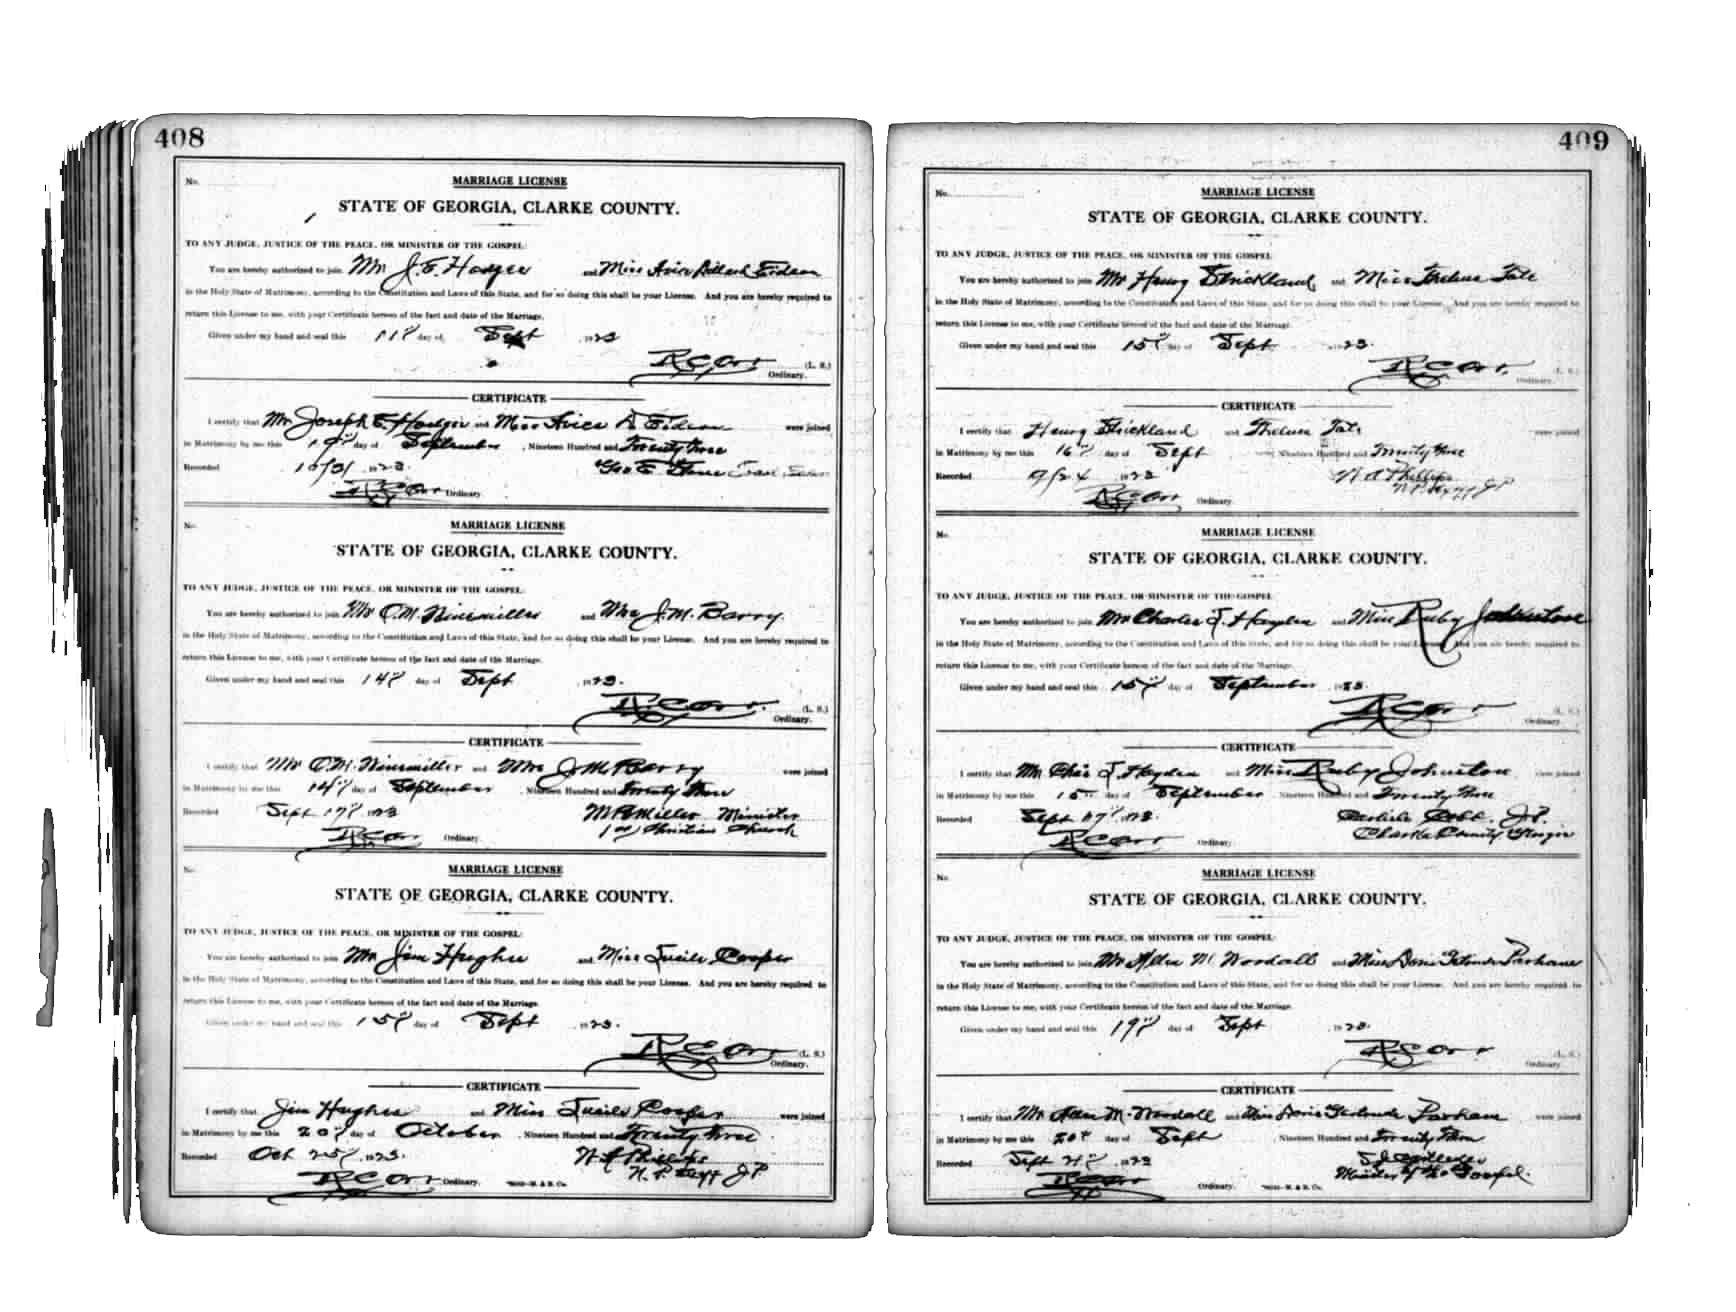 408
No.
MARRIAGE LICENSE
STATE OF GEORGIA, CLARKE COUNTY.
TO ANY JUDGE, JUSTICE OF THE PEACE, OR MINISTER OF THE GOSPEL:
You are hereby authorized to join Mr J. E. Hodges and Miss
in the Holy State of Matrimony, according to the Constitution and Laws of this State, and for so doing this shall be your License. And you are hereby required to
return this License to me, with your Certificate hereon of the fact and date of the Marriage.
Given under my hand and seal this 11th day of Sept 1923
R C Orr (L. S.)
Ordinary.
CERTIFICATE
I certify that Mr Joseph E. Hodges and Miss Avice were joined
in Matrimony by me this day of September, Nineteen Hundred and Twenty three
Recorded 10/31 1923 Geo E. Stone
R C Orr Ordinary.
No.
MARRIAGE LICENSE
STATE OF GEORGIA, CLARKE COUNTY.
TO ANY JUDGE, JUSTICE OF THE PEACE, OR MINISTER OF THE GOSPEL:
You are hereby authorized to join Mr O. M. Winesmiller and Mrs J. M. Barry
in the Holy State of Matrimony, according to the Constitution and Laws of this State, and for so doing this shall be your License. And you are hereby required to
return this License to me, with your Certificate hereon of the fact and date of the Marriage.
Given under my hand and seal this 14th day of Sept 1923.
R. C Orr. (L. S.)
Ordinary.
CERTIFICATE
I certify that Mr O. M. Winesmiller and Mrs J M Barry were joined
in Matrimony by me this 14th day of September, Nineteen Hundred and Twenty three
Recorded Sept 17th 1923 Miller Minister
R C Orr Ordinary. 1st Christian Church
No.
MARRIAGE LICENSE
STATE OF GEORGIA, CLARKE COUNTY.
TO ANY JUDGE, JUSTICE OF THE PEACE, OR MINISTER OF THE GOSPEL:
You are hereby authorized to join Mr Jim Hughes and Miss Lucile Cooper
in the Holy State of Matrimony, according to the Constitution and Laws of this State, and for so doing this shall be your License. And you are hereby required to
return this License to me, with your Certificate hereon of the fact and date of the Marriage.
Given under my hand and seal this 15th day of Sept 1923.
R C Orr (L. S.)
Ordinary.
CERTIFICATE
I certify that Jim Hughes and Miss Lucile Cooper were joined
in Matrimony by me this 20th day of October, Nineteen Hundred and Twenty three
Recorded Oct 25th 1923. Phillips
R C Orr Ordinary. N. P. J P
409
No.
MARRIAGE LICENSE
STATE OF GEORGIA, CLARKE COUNTY.
TO ANY JUDGE, JUSTICE OF THE PEACE, OR MINISTER OF THE GOSPEL:
You are hereby authorized to join Mr Henry Strickland, and Miss Thelma Tate
in the Holy State of Matrimony, according to the Constitution and Laws of this State, and for so doing this shall be your License. And you are hereby required to
return this License to me, with your Certificate hereon of the fact and date of the Marriage.
Given under my hand and seal this 15th day of Sept 1923.
R C Orr. (L. S.)
Ordinary.
CERTIFICATE
I certify that Henry Strickland and Thelma Tate were joined
in Matrimony by me this 16th day of Sept Nineteen Hundred and Twenty three
Recorded 9/24 1923 Phillips
R C Orr Ordinary. N. P. J P
No.
MARRIAGE LICENSE
STATE OF GEORGIA, CLARKE COUNTY.
TO ANY JUDGE, JUSTICE OF THE PEACE, OR MINISTER OF THE GOSPEL:
You are hereby authorized to join Mr Charles J. Hayden and Miss Ruby Johnston
in the Holy State of Matrimony, according to the Constitution and Laws of this State, and for so doing this shall be your License. And you are hereby required to
return this License to me, with your Certificate hereon of the fact and date of the Marriage.
Given under my hand and seal this 15th day of September 1923.
R C Orr (L. S.)
Ordinary.
CERTIFICATE
I certify that Mr Chas J. Hayden and Miss Ruby Johnston were joined
in Matrimony by me this 15 day of September, Nineteen Hundred and Twenty three
Recorded Sept 17th 1923. Carlisle Cobb. J. P.
R C Orr Ordinary. Clarke County Georgia
No.
MARRIAGE LICENSE
STATE OF GEORGIA, CLARKE COUNTY.
TO ANY JUDGE, JUSTICE OF THE PEACE, OR MINISTER OF THE GOSPEL:
You are hereby authorized to join Mr M. Woodall and Miss Doris Gertrude Parham
in the Holy State of Matrimony, according to the Constitution and Laws of this State, and for so doing this shall be your License. And you are hereby required to
return this License to me, with your Certificate hereon of the fact and date of the Marriage.
Given under my hand and seal this 19th day of Sept 1923.
R C Orr (L. S.)
Ordinary.
CERTIFICATE
I certify that Mr M. Woodall and Miss Doris Gertrude Parham were joined
in Matrimony by me this 20th day of Sept, Nineteen Hundred and Twenty three
Recorded Sept 1923
R C Orr Ordinary. Minister of the Gospel.